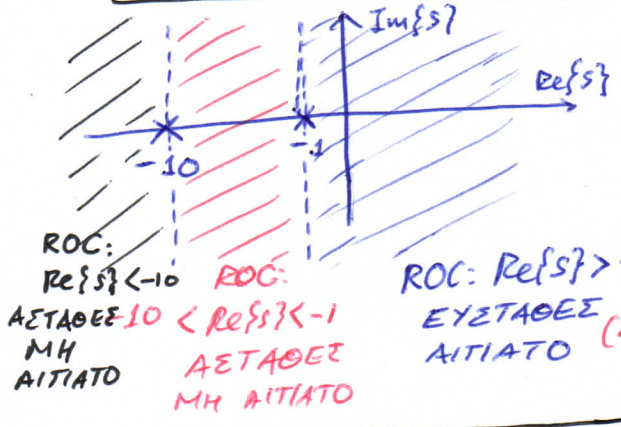 Im{s}
Re{s}
-10
-1
ROC:
Re{s}<-10
ΑΣΤΑΘΕΣ
ΜΗ
ΑΙΤΙΑΤΟ
ROC:
-10 < Re{s}<-1
ΑΣΤΑΘΕΣ
ΜΗ ΑΙΤΙΑΤΟ
ROC: Re{s}>
ΕΥΣΤΑΘΕΣ
ΑΙΤΙΑΤΟ